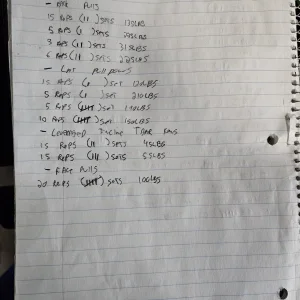 - Rack Pulls
15 Reps (II) sets 135LBS
5 Reps (I) sets 225LBS
3 Reps (II) sets 315LBS
6 Reps (II) sets 225LBS
- Lat pull downs
15 Reps (I) set 120LBS
5 Reps (I) set 210LBS
5 Reps (IIII) set
10 Reps (IIII) set 150LBS
- Incline Rows
15 Reps (II) sets 45LBS
15 Reps (III) sets 55LBS
- Face Pulls
20 Reps (IIII) sets 100LBS